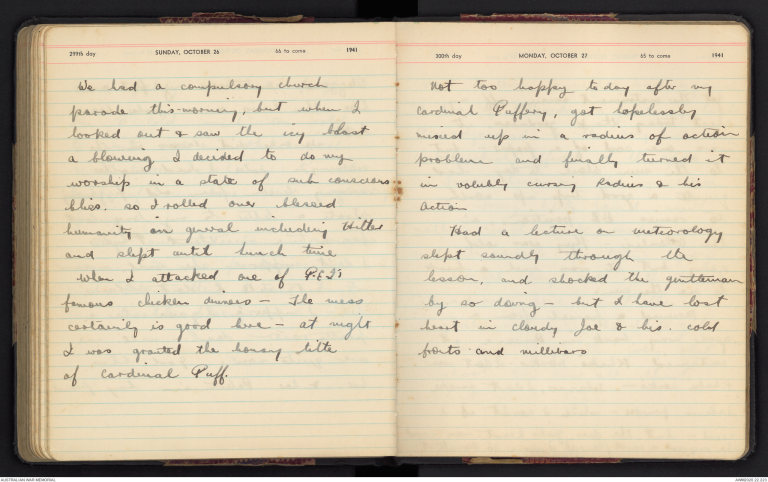 299th day SUNDAY, OCTOBER 26 66 to come 1941
We had a compulsory church
parade this morning, but when I
looked out & saw the icy blast
a blowing I decided to do my
worship in a state of sub conscious
bliss. so I rolled over blessed
humanity in general including Hitler
and slept until lunch time
when I attacked one of P.E.I's
famous chicken dinners – The mess
certainly is good here – at night
I was granted the honary title
of Cardinal Puff.
300th day MONDAY, OCTOBER 27 65 to come 1941
Not too happy today after my
Cardinal Puffery, got hopelessly
mixed up in a radius of action
problem and finally turned it
in volubly cursing Radius & his
Action
Had a lecture on meteorology
slept soundly through the
lesson, and shocked the gentleman
by so doing – but I have lost
heart in cloudy Joe & his cold
fronts and millibars
AUSTRALIAN WAR MEMORIAL